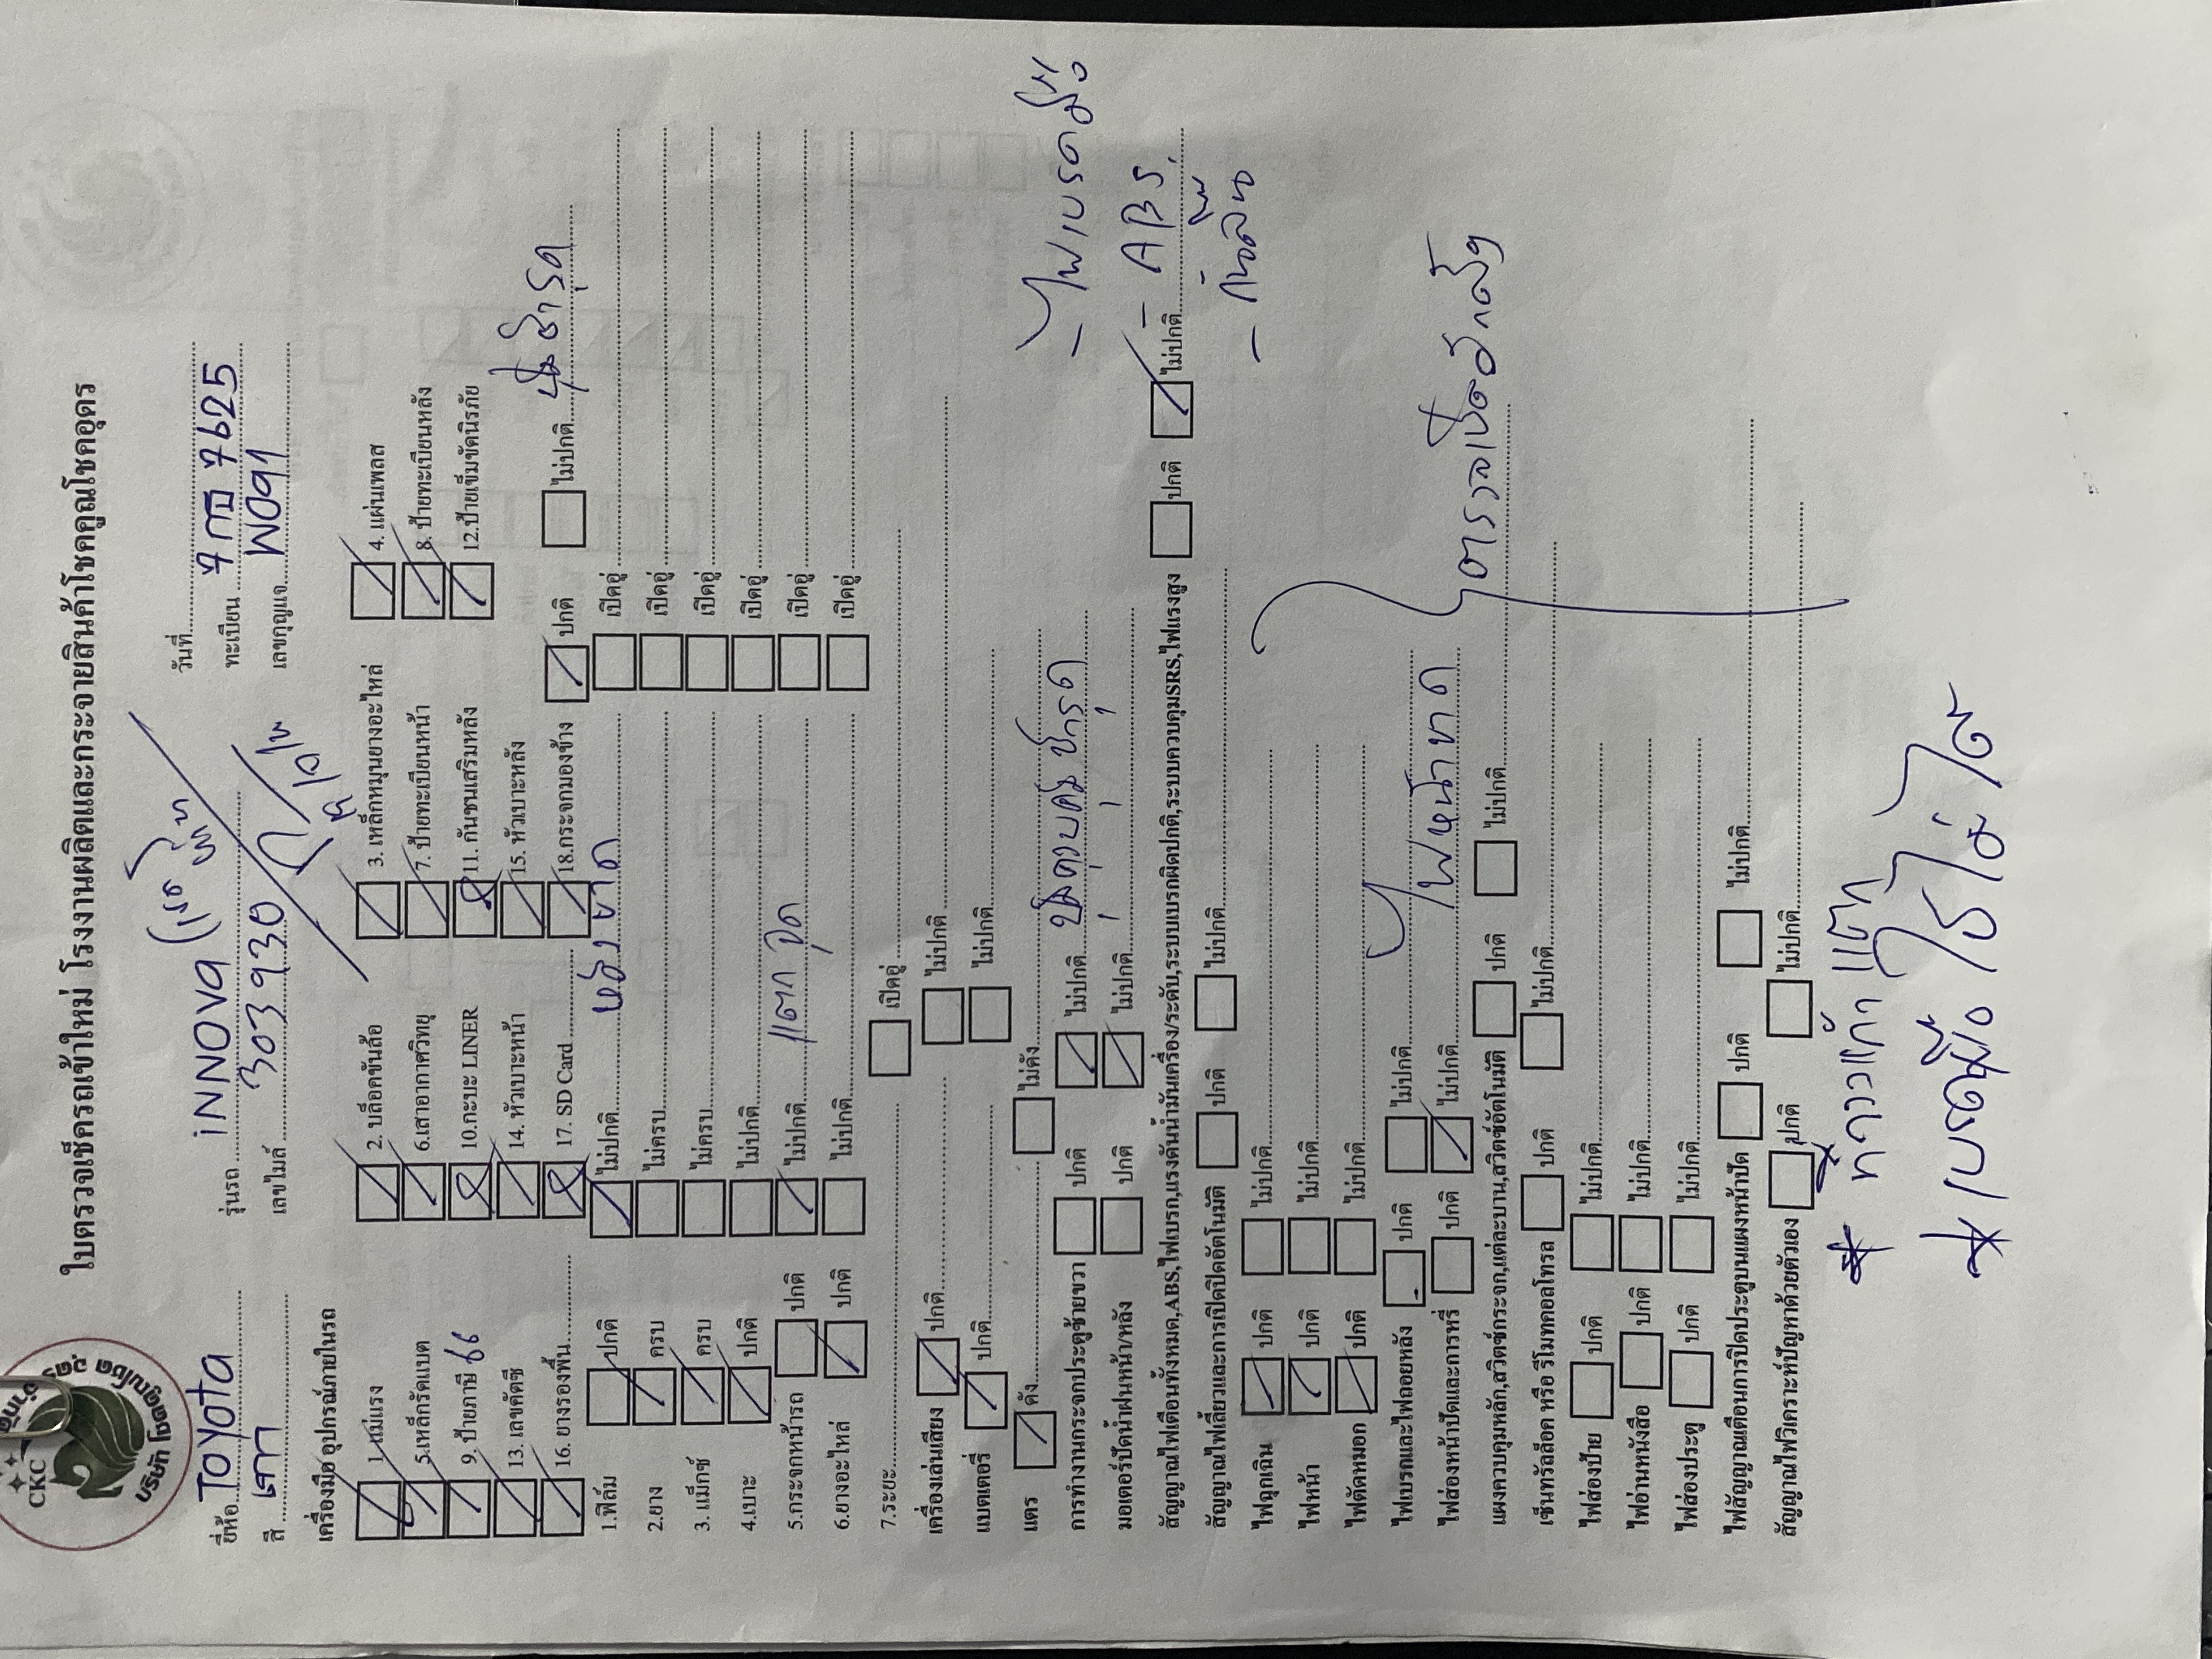 ใบตรวจเช็ครถเข้าใหม่ โรงงานผลิตและกระจายสินค้าโชคคูณโชคอุดร
CKC
บริษัท โชคคูณโชค อุดร จำกัด
วันที่
ยี่ห้อ TOYOTA รุ่นรถ INNOVA ทะเบียน 7กญ 7625
สี เทา เลขไมล์ 303930 เลขกุญแจ W091
เครื่องมือ อุปกรณ์ภายในรถ
1. แม่แรง 2. บล็อคขันล้อ 3. เหล็กหมุนยางอะไหล่ 4. แผ่นเพลส
5.เหล็กรัดแบต 6.เสาอากาศวิทยุ 7. ป้ายทะเบียนหน้า 8. ป้ายทะเบียนหลัง
9. ป้ายภาษี 66 10.กะบะ LINER 11. กันชนเสริมหลัง 12.ป้ายเข็มขัดนิรภัย
13. เลขคัตซี 14. หัวเบาะหน้า 15. หัวเบาะหลัง
16. ยางรองพื้น 17. SD Card 18.กระจกมองข้าง ปกติ ไม่ปกติ ชำรุด
1.ฟิล์ม ปกติ ไม่ปกติ หลังขาด เปิดอู่
2.ยาง ครบ ไม่ครบ เปิดอู่
3. แม็กซ์ ครบ ไม่ครบ เปิดอู่
4.เบาะ ปกติ ไม่ปกติ เปิดอู่
5.กระจกหน้ารถ ปกติ ไม่ปกติ แตก จุด เปิดอู่
6.ยางอะไหล่ ปกติ ไม่ปกติ เปิดอู่
7.ระยะ เปิดอู่
เครื่องเล่นเสียง ปกติ ไม่ปกติ
แบตเตอรี่ ปกติ ไม่ปกติ
แตร ดัง ไม่ดัง
การทำงานกระจกประตูซ้ายขวา ปกติ ไม่ปกติ ชุดควบคุมชำรุด
มอเตอร์ปัดน้ำฝนหน้า/หลัง ปกติ ไม่ปกติ
- ไฟเบรคมือ
สัญญาณไฟเตือนทั้งหมด,ABS,ไฟเบรก,แรงดันน้ำมันเครื่อง/ระดับ,ระบบเบรกผิดปกติ,ระบบควบคุมSRS,ไฟแรงสูง ปกติ ไม่ปกติ - ABS
สัญญาณไฟเลี้ยวและการเปิดปิดอัตโนมัติ ปกติ ไม่ปกติ - กันลื่น
ไฟฉุกเฉิน ปกติ ไม่ปกติ
ไฟหน้า ปกติ ไม่ปกติ
ไฟตัดหมอก ปกติ ไม่ปกติ
ไฟเบรกและไฟถอยหลัง ปกติ ไม่ปกติ
ไฟส่องหน้าปัดและการหรี่ ปกติ ไม่ปกติ ไฟหน้าขาด
แผงควบคุมหลัก,สวิตช์กระจก,แต่ละบาน,สวิตซ์อัตโนมัติ ปกติ ไม่ปกติ ตรวจเช็คอีกครั้ง
เซ็นทรัลล็อค หรือ รีโมทคอลโทรล ปกติ ไม่ปกติ
ไฟส่องป้าย ปกติ ไม่ปกติ
ไฟอ่านหนังสือ ปกติ ไม่ปกติ
ไฟส่องประตู ปกติ ไม่ปกติ
ไฟสัญญาณเตือนการปิดประตูบนแผงหน้าปัด ปกติ ไม่ปกติ
สัญญาณไฟวิเคราะห์ปัญหาด้วยตัวเอง ปกติ ไม่ปกติ
* ท้าวแก้ม แตก
* เบรคมือ ใช้ไม่ได้